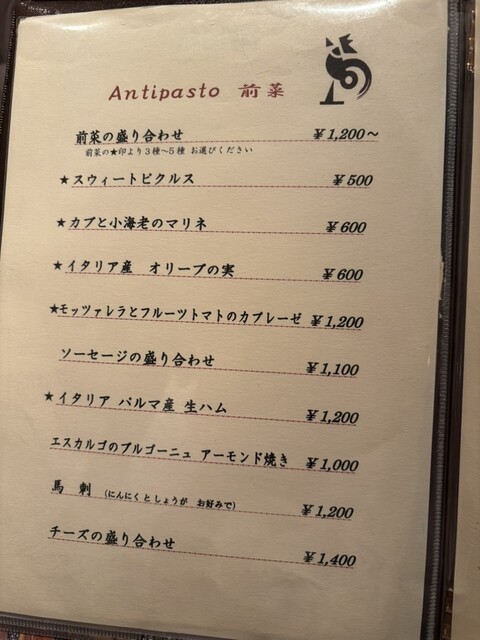 Antipasto 前菜
前菜の盛り合わせ ¥1,200～
前菜の★印より3種～5種 お選びください
★スウィートピクルス ¥500
★カブと小海老のマリネ ¥600
★イタリア産 オリーブの実 ¥600
★モッツァレラとフルーツトマトのカプレーゼ ¥1,200
ソーセージの盛り合わせ ¥1,100
★イタリア パルマ産 生ハム ¥1,200
エスカルゴのブルゴーニュ アーモンド焼き ¥1,000
馬 刺 (にんにくとしょうが お好みで) ¥1,200
チーズの盛り合わせ ¥1,400